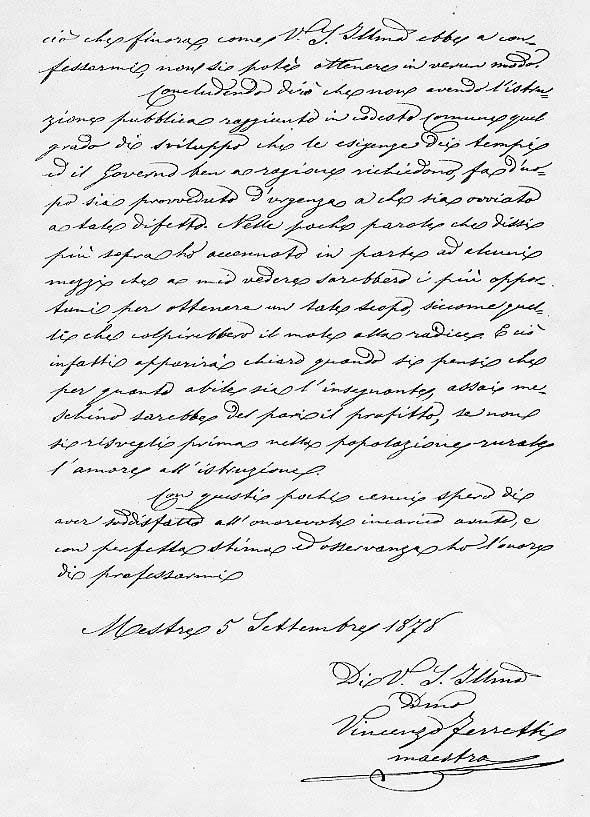 ciò che finora, come V. S. Illma ebbe a con-
fessarmi, non si potè ottenere in verun modo.
Concludendo dirò che non avendo l'istru-
zione pubblica raggiunto in codesto comune quel
grado di sviluppo che le esigenze dei tempi
ed il Governo ben a ragione richiedono, fa d'uo-
po sia provveduto d'urgenza a che sia ovviato
a tale difetto. Nelle poche parole che dissi
più sopra ho accennato in parte ad alcuni
mezzi che a mio vedere sarebbero i più oppor-
tuni per ottenere un tale scopo, siccome quel-
li che colpirebbero il male alla radice. E ciò
infatti apparirà chiaro quando si pensi che
per quanto abile sia l'insegnante, assai me-
schino sarebbe del pari il profitto, se non
si risvegli prima nella popolazione rurale
l'amore all'istruzione.
Con questi pochi cenni spero di
aver soddisfatto all'onorevole incarico avuto, e
con perfetta stima ed osservanza ho l'onore
di professarmi
Mestre 5 Settembre 1878
Di V. S. Illma
Dmo
Vincenzo Ferretti
maestro